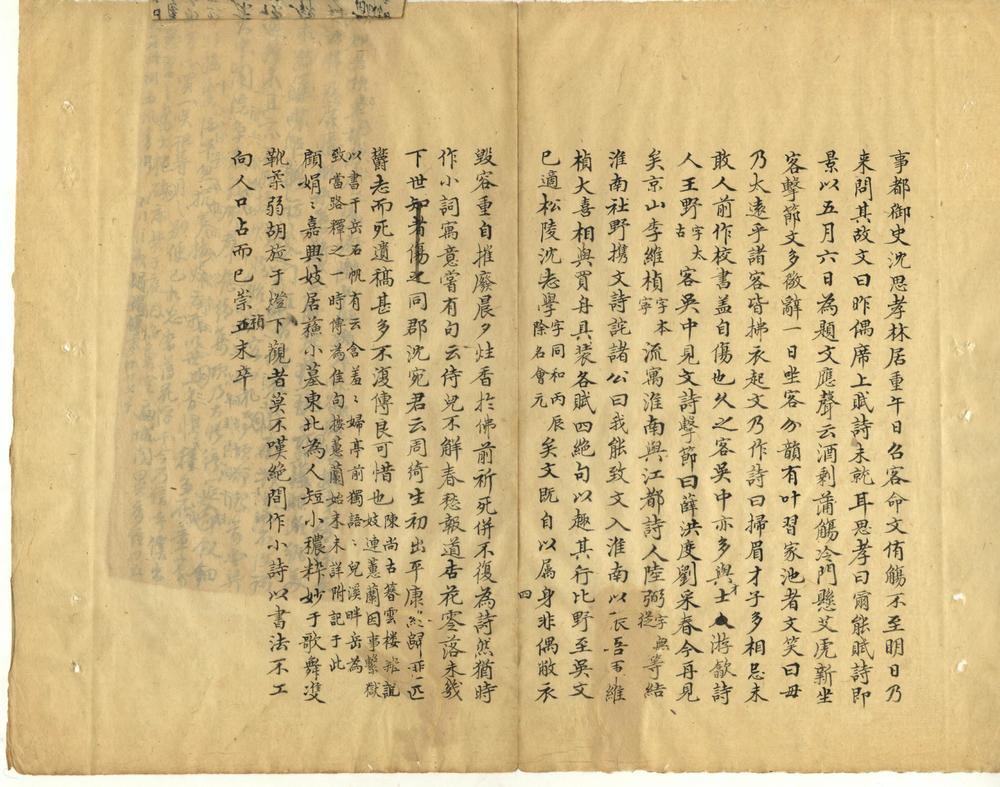 事都御史沈思孝林居重午日召客命文侑觴不至明日乃
来問其故文曰昨偶席上賦詩未就耳思孝曰爾能賦詩即
景以五月六日為題文應聲云酒剩蒲觴冷門懸艾虎新坐
客擊節文多微辭一日坐客分韻有叶習家池者文笑曰毋
乃太遠乎諸客皆拂衣起文乃作詩曰掃眉才子多相忌未
敢人前作校書盖自傷也久之客吳中亦多與士才游歙詩
人王野字太古客吳中見文詩擊節曰薛洪度劉采春今再見
矣京山李維楨字本寧流寓淮南與江都詩人陸弼字無從等結
淮南社野携文詩詫諸公曰我能致文入淮南以一長吾軍維
楨大喜相與買舟具装各賦四絕句以趣其行比野至吳文
已適松陵沈志學字同和丙辰除名會元矣文既自以属身非偶敝衣
四
毀容重自摧廢晨夕炷香於佛前祈死併不復為詩然猶時
作小詞寓意嘗有句云侍兒不解春愁報道杏花零落未幾
下世知者傷之同郡沈宛君云周绮生初出平康終歸匪匹
欝志而死遺稿甚多不復傳良可惜也陳尚古簪雲樓雜說
妓連蕙蘭因事繫獄
以書干岳石帆有云含羞羞婦亭前獨語語兒溪畔岳為
致當路釋之一時傳為佳句按蕙蘭始末未詳附記于此
顧娟娟嘉興妓居蘓小墓東北為人短小穠粹妙于歌舞雙
靴柔弱胡旋于燈下觀者莫不嘆絕間作小詩以書法不工
向人口占而已崇禎末卒